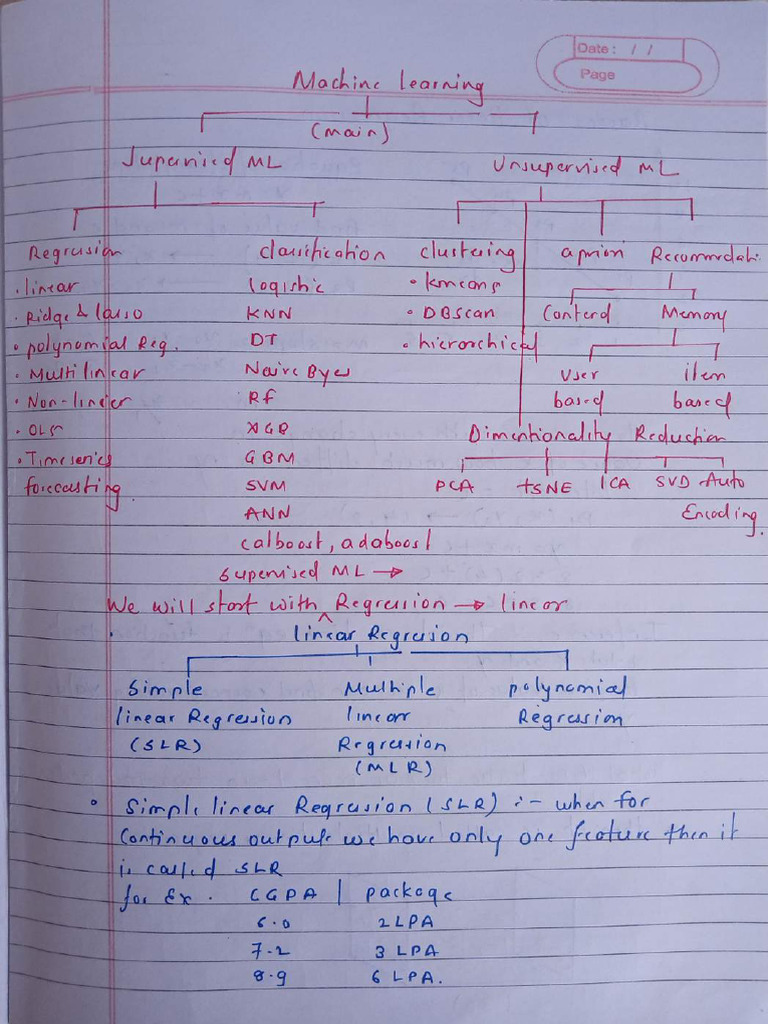 Date: / /
Page
Machine Learning
(main)
Supervised ML Unsupervised ML
Regression classification clustering apriori Recommdati
• linear Logistic • kmeans Contend Memory
• Ridge & lasso KNN • DBscan
• polynomial Reg. DT • hierarchical user item
• Multilinear Naive Byes based based
• Non-linear Rf
• OLS XGB Dimentionality Reduction
• Timeseries GBM PCA tSNE ICA SVD Auto
forecasting. SVM Encoding.
ANN
catboost, adaboost
Supervised ML →
We will start with ^ Regression → linear
linear Regression
Simple Multiple polynomial
linear Regression linear Regression
(SLR) Regression
(MLR)
• Simple linear Regression (SLR) :- when for
Continuous output we have only one feature then it
is called SLR
for Ex. CGPA | package
6.0 2 LPA
7.2 3 LPA
8.9 6 LPA.